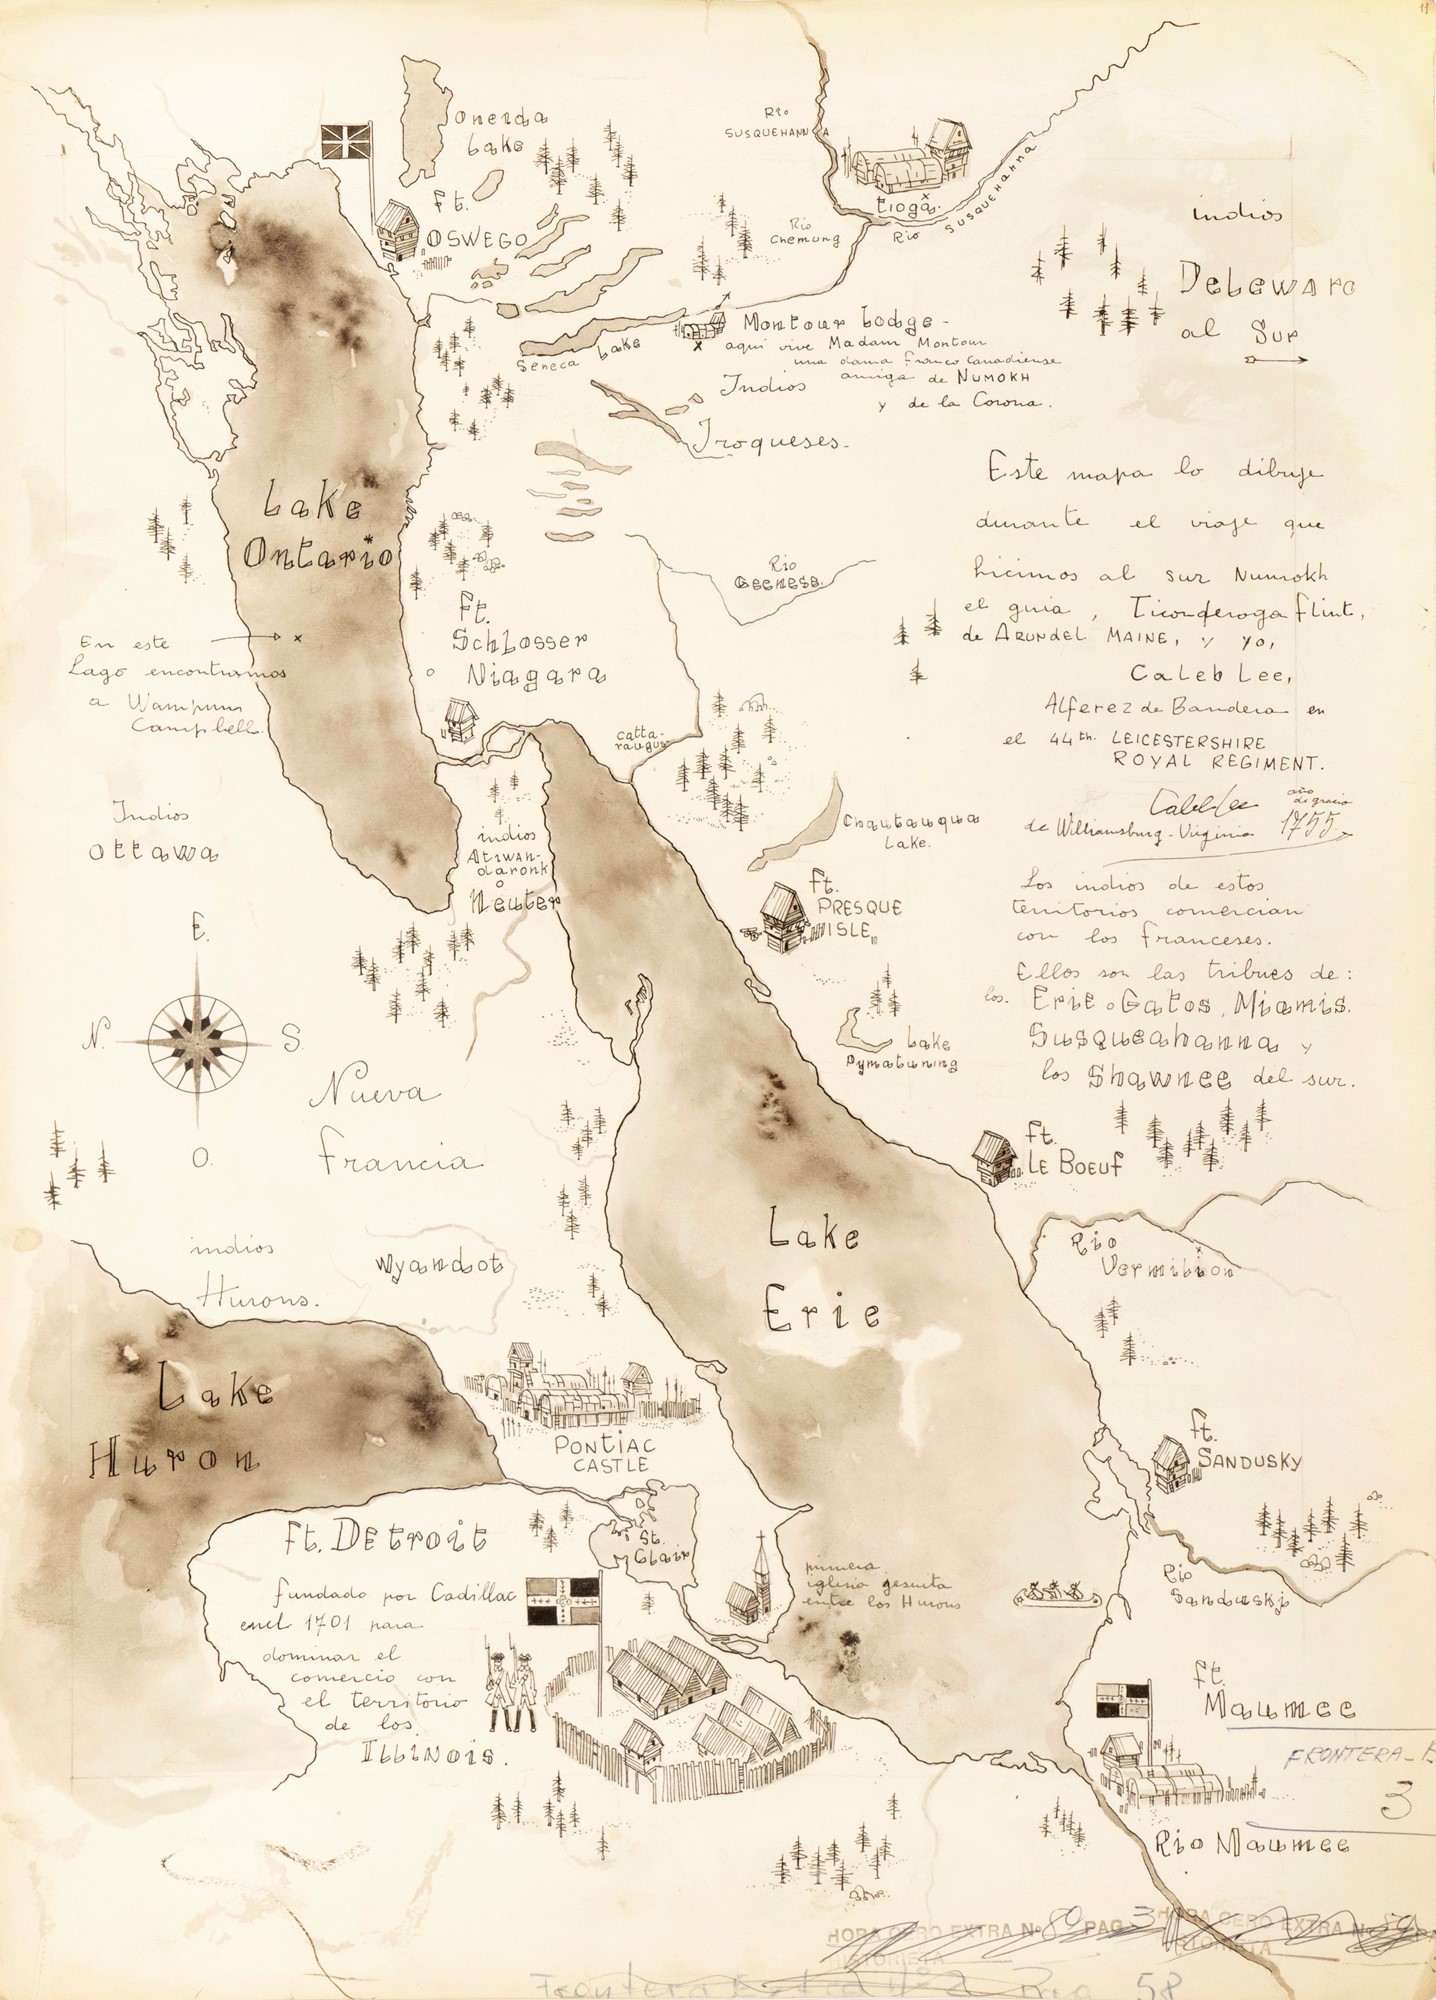 11
Onenda
Lake
ft.
OSWEGO
Rio
SUSQUEHANNA
tioga.
Rio Susquehanna
Rio
Chemung
indios
Deleware
al Sur
Seneca Lake
Montour Lodge-
aqui vive Madam Montour
una dama franco Canadiense
amiga de NUMOKH
y de la Corona.
Indios
Iroqueses.
Lake
Ontario
Este mapa lo dibuje
durante el viaje que
hicimos al sur Numokh
el guia, Ticonderoga Flint,
de ARUNDEL MAINE, y yo,
Caleb Lee,
Alferez de Bandera en
el 44th. LEICESTERSHIRE
ROYAL REGIMENT.
Caleb Lee
año
de gracia
de Williamsburg-Virginia 1755.
Rio
Geenese.
ft.
Schlosser
Niagara
En este
Lago encontramos
a Wampum
Campbell.
Catta-
raugus
Indios
Ottawa
indios
Atiwan-
daronk
o
Neuter
Chautauqua
Lake.
ft.
PRESQUE
ISLE
Los indios de estos
territorios comercian
con los franceses.
Ellos son las tribues de:
los. Erie o Gatos, Miamis.
Susqueahanna y
los Shawnee del sur.
E.
N. S.
O.
Lake
Pymatuning
Nueva
Francia
ft.
LE BOEUF
indios
Hurons.
Wyandot
Lake
Erie
Rio
Vermilion
Lake
Huron
PONTIAC
CASTLE
ft.
SANDUSKY
ft. Detroit
fundado por Cadillac
en el 1701 para
dominar el
comercio con
el territorio
de los
ILLINOIS.
St.
Clair
primera
iglesia jesuita
entre los Hurons
Rio
Sanduski
ft.
Maumee
FRONTERA-E
3
Rio Maumee
HORA CERO EXTRA Nº 80 PAG 3
HISTORIETA
HORA CERO EXTRA Nº
HISTORIETA
Frontera Extra Nº 2 Pag 58